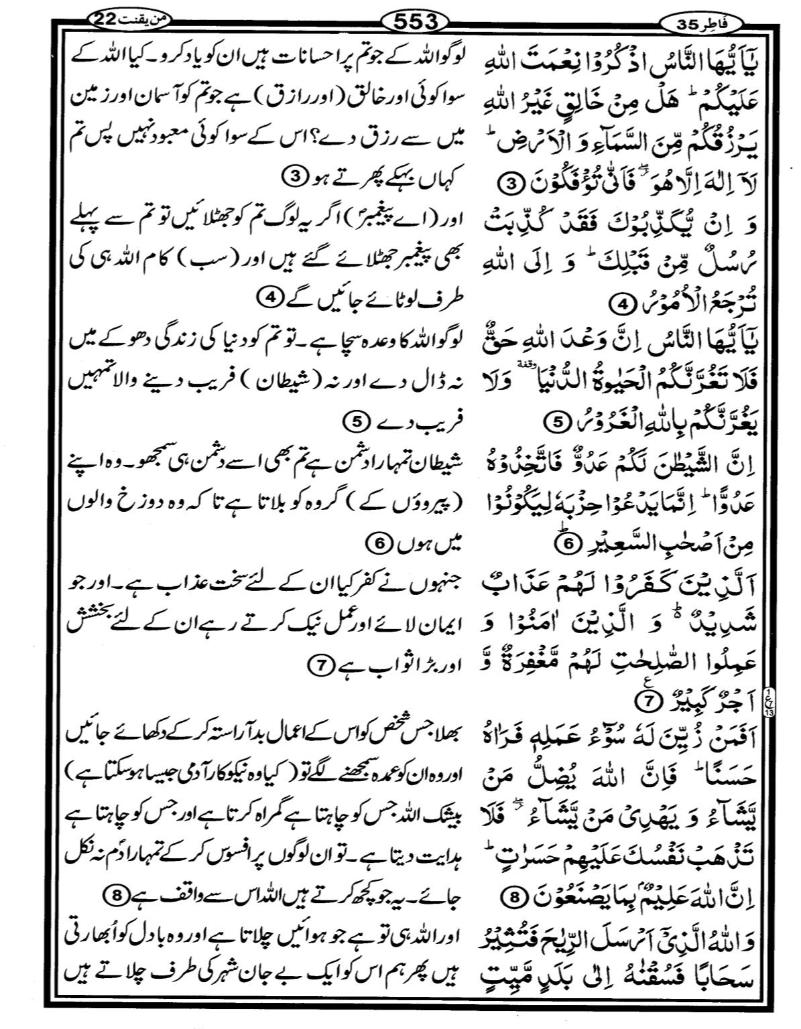 فَاطِر 35
553
من يقنت 22
يٰۤاَيُّهَا النَّاسُ اذۡكُرُوۡا نِعۡمَتَ اللّٰهِ
عَلَيۡكُمۡ ؕ هَلۡ مِنۡ خَالِقٍ غَيۡرُ اللّٰهِ
يَرۡزُقُكُمۡ مِّنَ السَّمَآءِ وَ الۡاَرۡضِ ؕ
لَاۤ اِلٰهَ اِلَّا هُوَ ۖ فَاَنّٰى تُؤۡفَكُوۡنَ ③
وَ اِنۡ يُّكَذِّبُوۡكَ فَقَدۡ كُذِّبَتۡ
رُسُلٌ مِّنۡ قَبۡلِكَ ؕ وَ اِلَى اللّٰهِ
تُرۡجَعُ الۡاُمُوۡرُ ④
يٰۤاَيُّهَا النَّاسُ اِنَّ وَعۡدَ اللّٰهِ حَقٌّ
فَلَا تَغُرَّنَّكُمُ الۡحَيٰوةُ الدُّنۡيَا وقفة وَلَا
يَغُرَّنَّكُمۡ بِاللّٰهِ الۡغَرُوۡرُ ⑤
اِنَّ الشَّيۡطٰنَ لَكُمۡ عَدُوٌّ فَاتَّخِذُوۡهُ
عَدُوًّا ؕ اِنَّمَا يَدۡعُوۡا حِزۡبَهٗ لِيَكُوۡنُوۡا
مِنۡ اَصۡحٰبِ السَّعِيۡرِ ⑥ؕ
اَلَّذِيۡنَ كَفَرُوۡا لَهُمۡ عَذَابٌ
شَدِيۡدٌ ؕ وَ الَّذِيۡنَ اٰمَنُوۡا وَ
عَمِلُوا الصّٰلِحٰتِ لَهُمۡ مَّغۡفِرَةٌ وَّ
اَجۡرٌ كَبِيۡرٌ ⑦ع
اَفَمَنۡ زُيِّنَ لَهٗ سُوۡٓءُ عَمَلِهٖ فَرَاٰهُ
حَسَنًا ؕ فَاِنَّ اللّٰهَ يُضِلُّ مَنۡ
يَّشَآءُ وَ يَهۡدِىۡ مَنۡ يَّشَآءُ ۖ فَلَا
تَذۡهَبۡ نَفۡسُكَ عَلَيۡهِمۡ حَسَرٰتٍ ؕ
اِنَّ اللّٰهَ عَلِيۡمٌۢ بِمَا يَصۡنَعُوۡنَ ⑧
وَاللّٰهُ الَّذِىۡۤ اَرۡسَلَ الرِّيٰحَ فَتُثِيۡرُ
سَحَابًا فَسُقۡنٰهُ اِلٰى بَلَدٍ مَّيِّتٍ
لوگو اللہ کے جو تم پر احسانات ہیں ان کو یاد کرو۔ کیا اللہ کے
سوا کوئی اور خالق (اور رازق) ہے جو تم کو آسمان اور زمین
میں سے رزق دے؟ اس کے سوا کوئی معبود نہیں پس تم
کہاں بہکے پھرتے ہو ③
اور (اے پیغمبرؐ) اگر یہ لوگ تم کو جھٹلائیں تو تم سے پہلے
بھی پیغمبر جھٹلائے گئے ہیں اور (سب) کام اللہ ہی کی
طرف لوٹائے جائیں گے ④
لوگو اللہ کا وعدہ سچا ہے۔ تو تم کو دنیا کی زندگی دھوکے میں
نہ ڈال دے اور نہ (شیطان) فریب دینے والا تمہیں
فریب دے ⑤
شیطان تمہارا دشمن ہے تم بھی اسے دشمن ہی سمجھو۔ وہ اپنے
(پیروؤں کے) گروہ کو بلاتا ہے تا کہ وہ دوزخ والوں
میں ہوں ⑥
جنہوں نے کفر کیا ان کے لئے سخت عذاب ہے۔ اور جو
ایمان لائے اور عمل نیک کرتے رہے ان کے لئے بخشش
اور بڑا ثواب ہے ⑦
بھلا جس شخص کو اس کے اعمال بد آراستہ کر کے دکھائے جائیں
اور وہ ان کو عمدہ سمجھنے لگے تو (کیا وہ نیکوکار آدمی جیسا ہو سکتا ہے)
بیشک اللہ جس کو چاہتا ہے گمراہ کرتا ہے اور جس کو چاہتا ہے
ہدایت دیتا ہے۔ تو ان لوگوں پر افسوس کر کے تمہارا دَم نہ نکل
جائے۔ یہ جو کچھ کرتے ہیں اللہ اس سے واقف ہے ⑧
اور اللہ ہی تو ہے جو ہوائیں چلاتا ہے اور وہ بادل کو اُبھارتی
ہیں پھر ہم اس کو ایک بے جان شہر کی طرف چلاتے ہیں